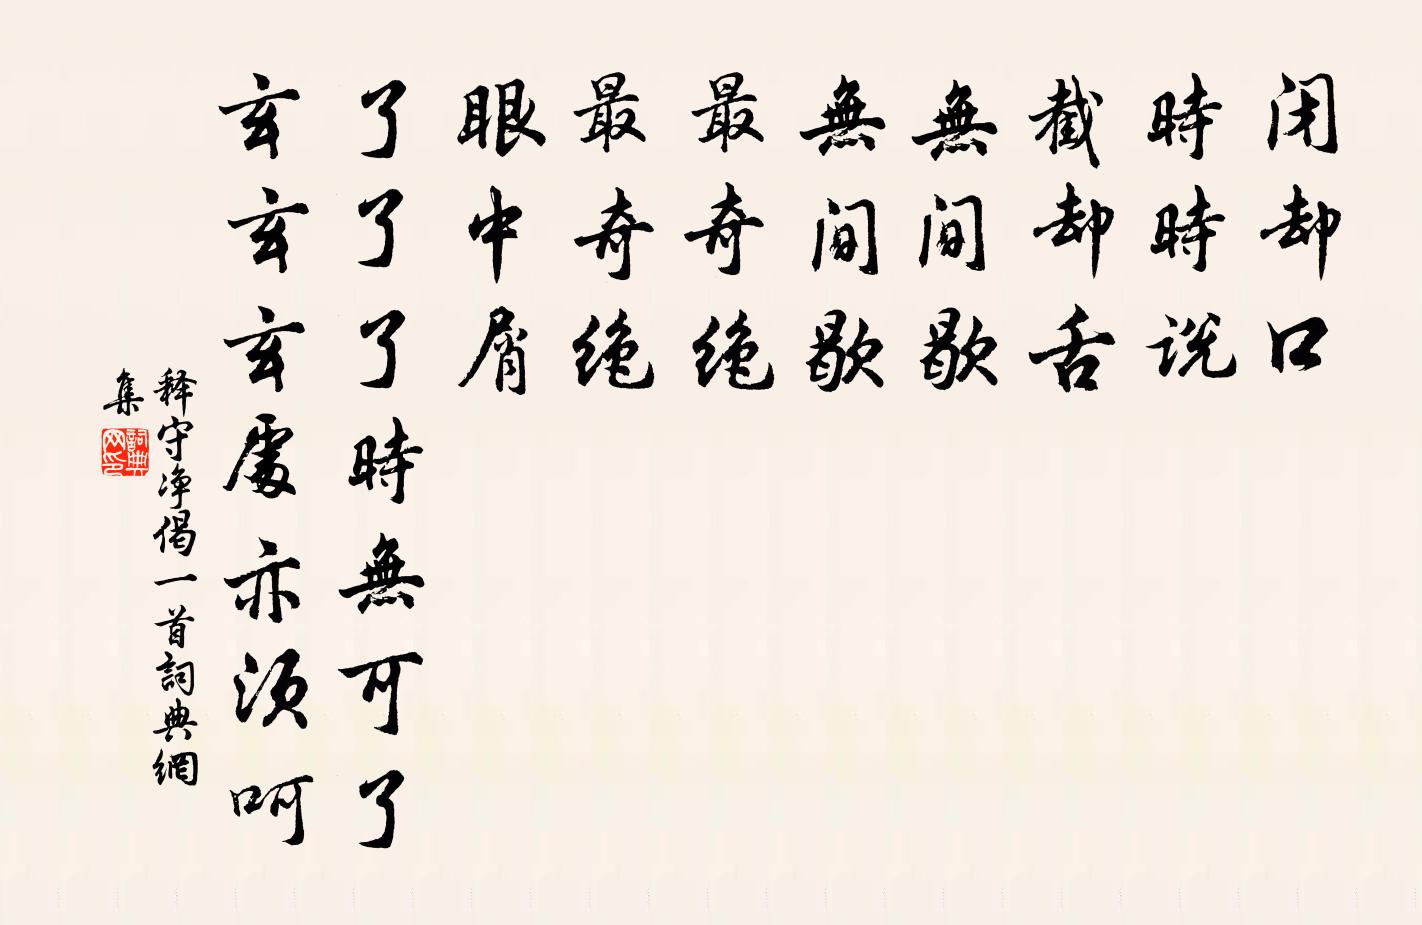 闭却口
時時说
截却舌
無间歇
無间歇
最奇绝
最奇绝
眼中屑
了了了時無可了
玄玄玄處亦须呵
释守净偈一首詞典網
集
詞典
网印